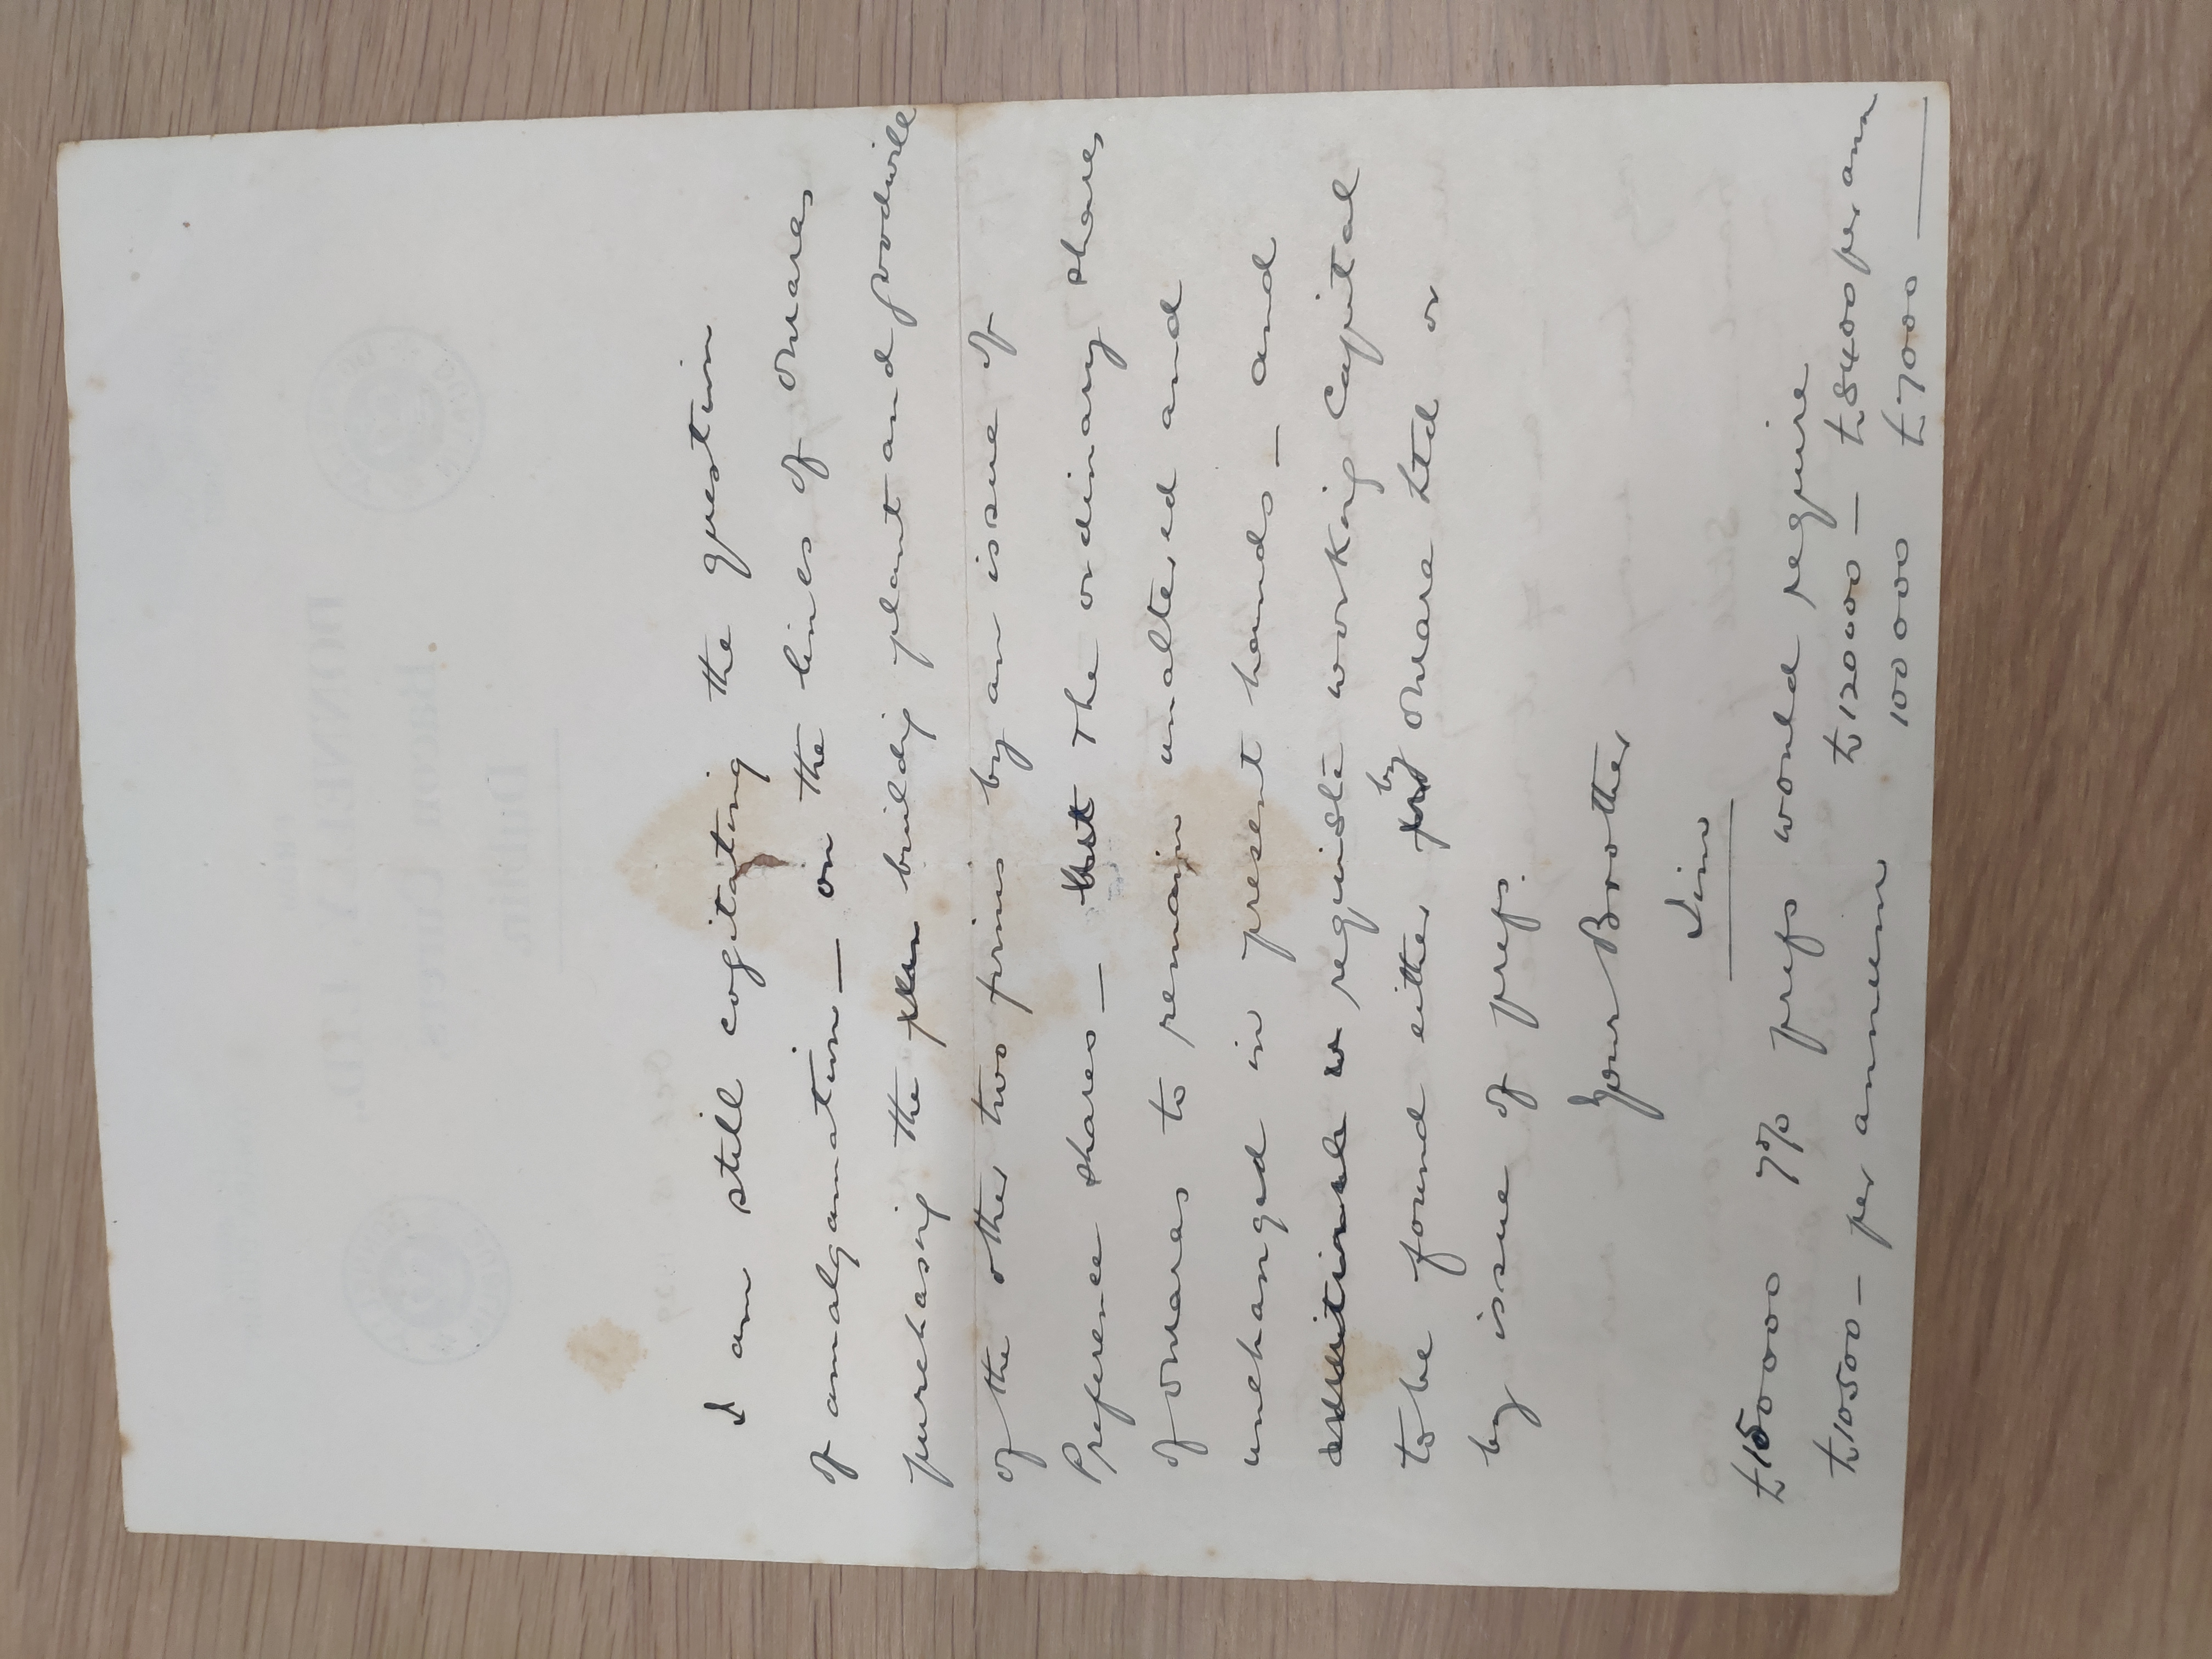 I am still cogitating the question
of amalgamation — on the lines of O'Mara's
purchasing the plan building plant and goodwill
of the other two firms by an issue of
Preference shares — but The ordinary shares
of O'Mara's to remain unaltered and
unchanged in present hands — and
additional w requisite working Capital
to be found either by O'Mara Ltd or
by issue of prefs.
Your Brother
Jim
£150000 7% prefs would require
£10500 — per annum £120000 — £8400 per ann
100000 £7000
DONNELLY, LTD.
Bacon Curers,
Dublin.